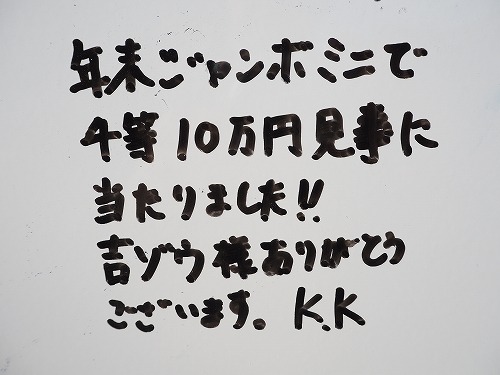 年末ジャンボミニで
4等10万円見事に
当たりました!!
吉ゾウ様ありがとう
ございます。K.K